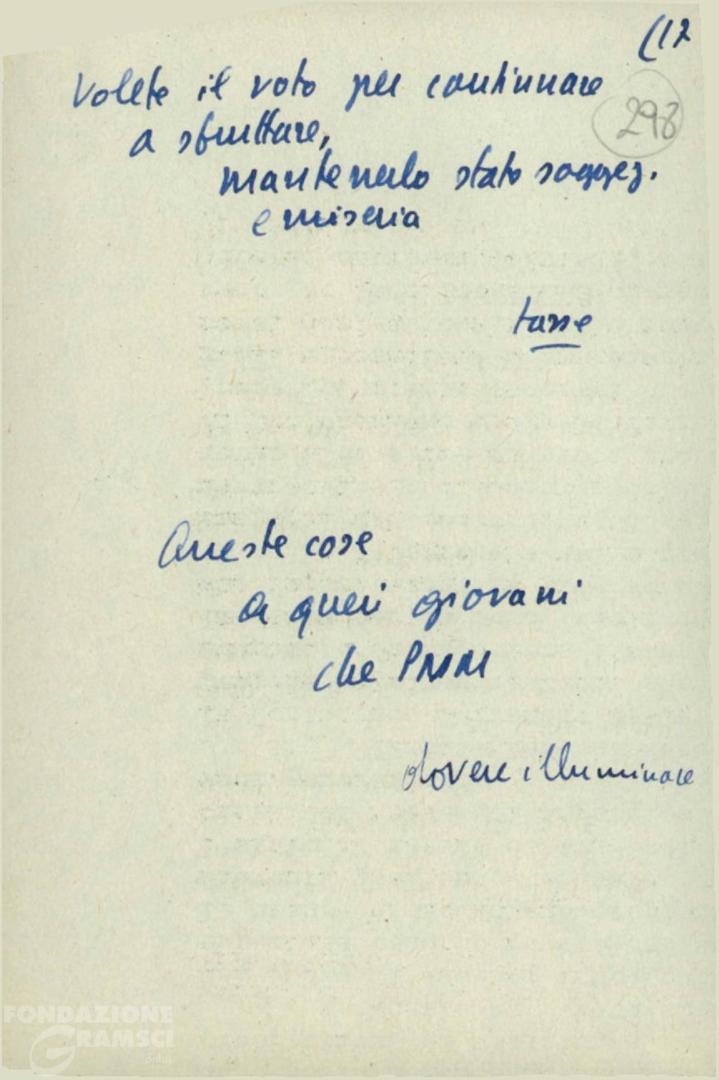 (12
298
Volete il voto per continuare
a sfruttare,
mantenerlo stato soggez.
e miseria
tasse
Queste cose
a quei giovani
che PNM
dovere illuminare
FONDAZIONE
GRAMSCI